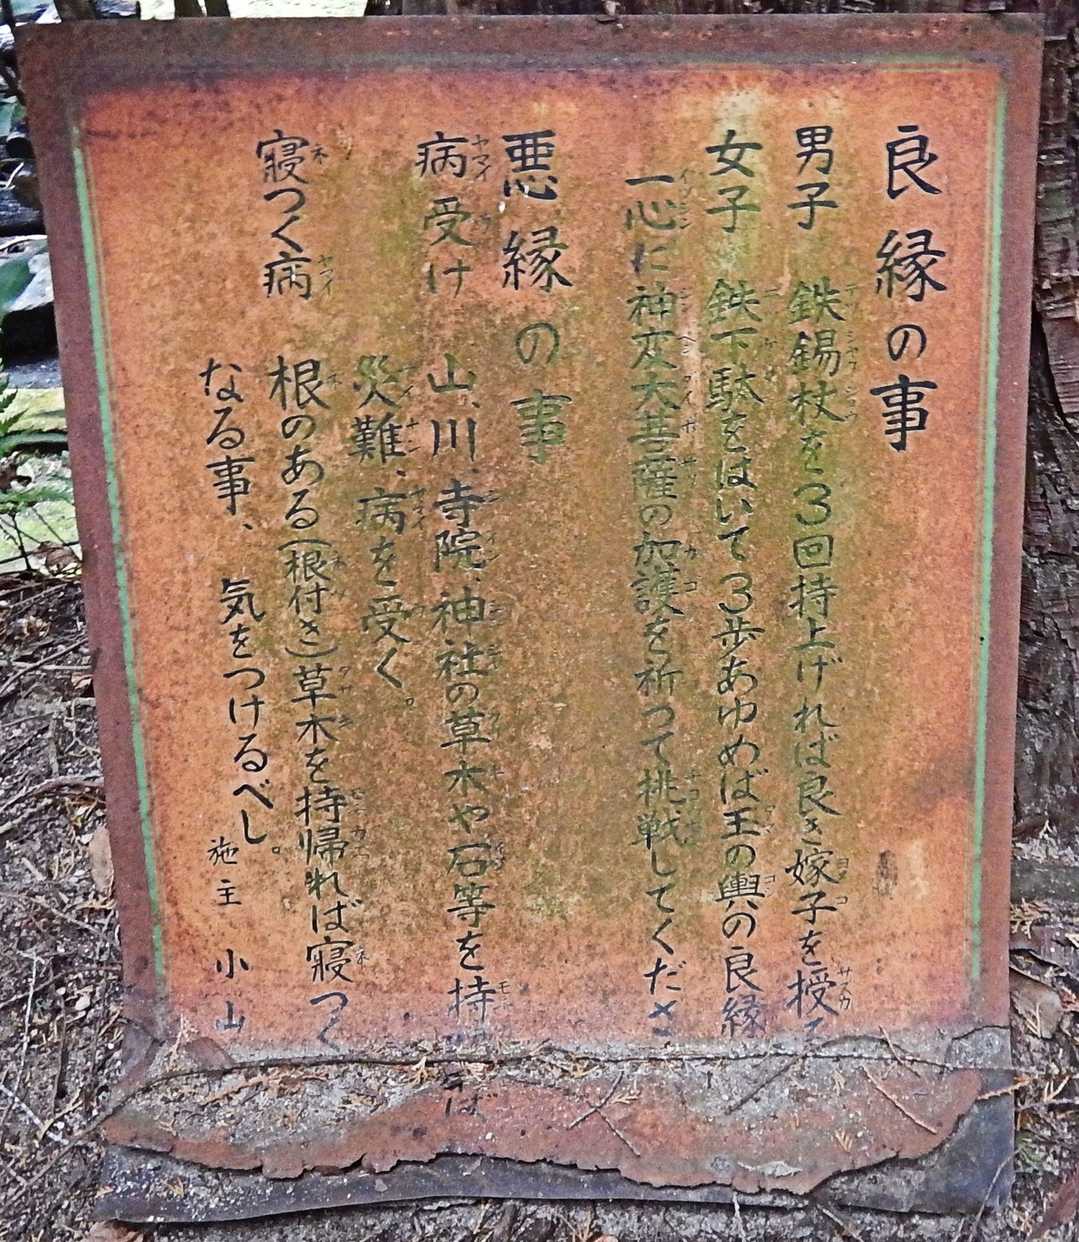 良縁の事
男子 鉄錫杖を3回持上げれば良き嫁子を授
女子 鉄下駄をはいて3歩あゆめば玉の輿の良縁
一心に神変大菩薩の加護を祈つて挑戦してくださ
悪縁の事
病受け 山、川、寺院、神社の草木や石等を持 ば
災難、病を受く。
寝つく病 根のある(根付き)草木を持帰れば寝つく
なる事、気をつけるべし。
施主 小山